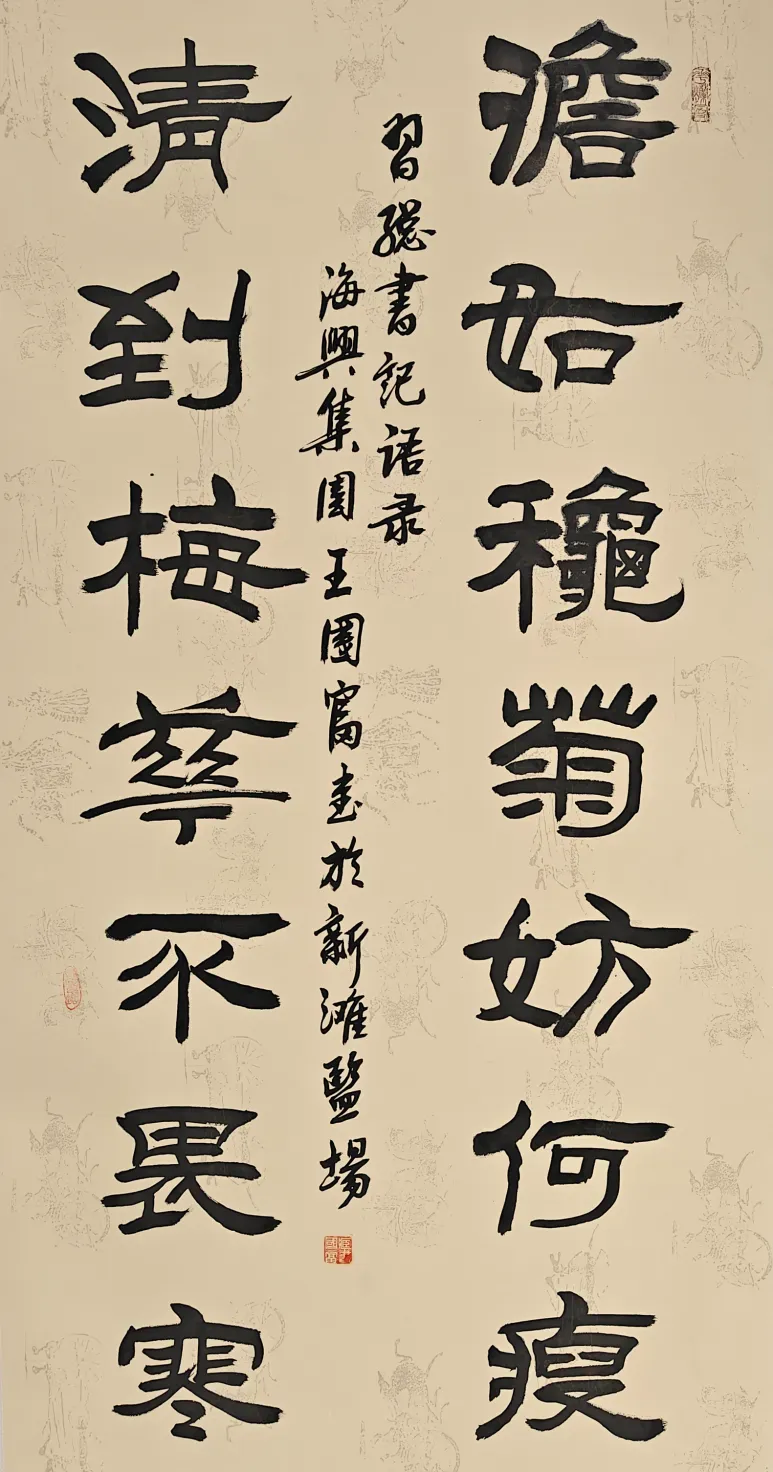 澹如穐菊妨何瘦
清到梅華不畏寒
習總書記語录
海興集團王國富書於新灘鹽場